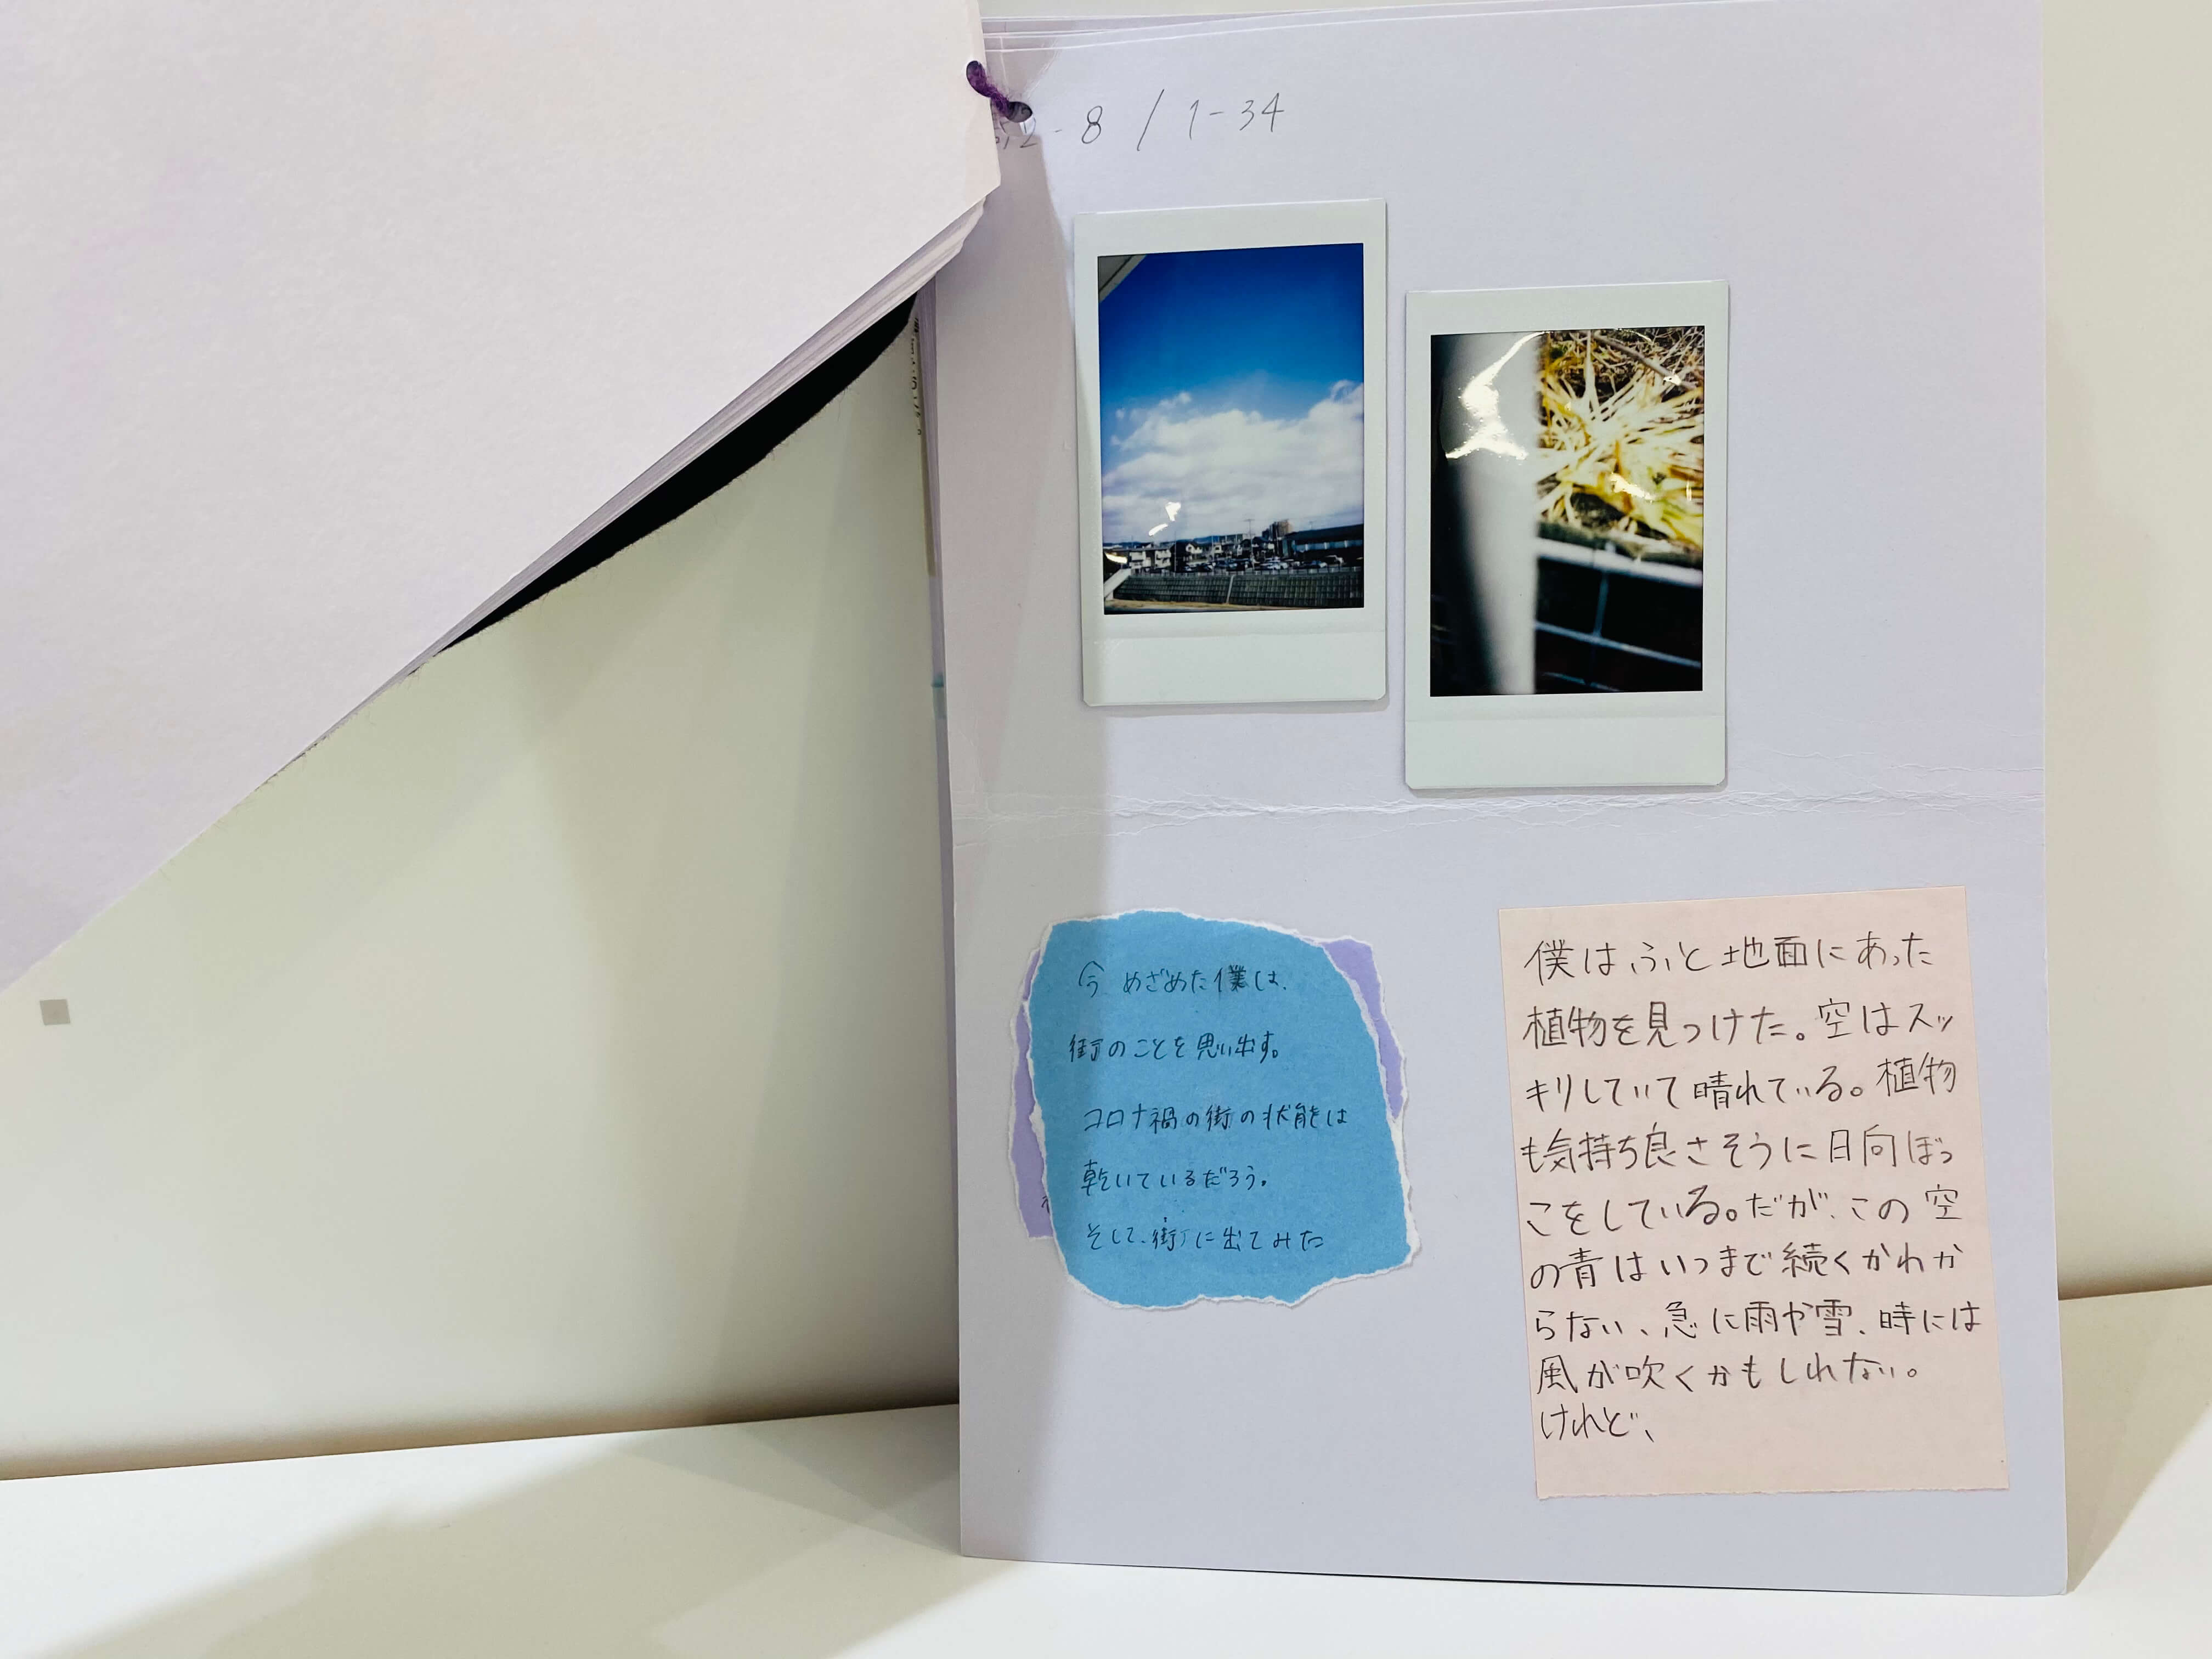 2-8 / 1-34
今 めざめた僕は、
街のことを思い出す。
コロナ禍の街の状態は
乾いているだろう。
そして、街に出てみた
僕はふと地面にあった
植物を見つけた。空はスッ
キリしていて晴れている。植物
も気持ち良さそうに日向ぼっ
こをしている。だが、この空
の青はいつまで続くかわか
らない、急に雨や雪、時には
風が吹くかもしれない。
けれど、